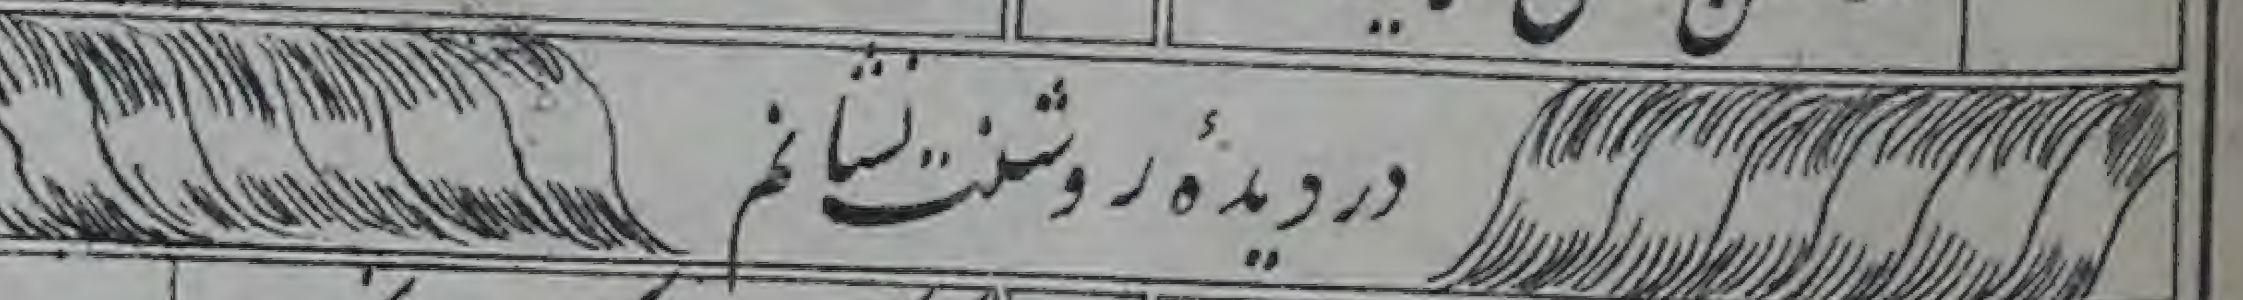 در دیدهٔ روشنت نشانم